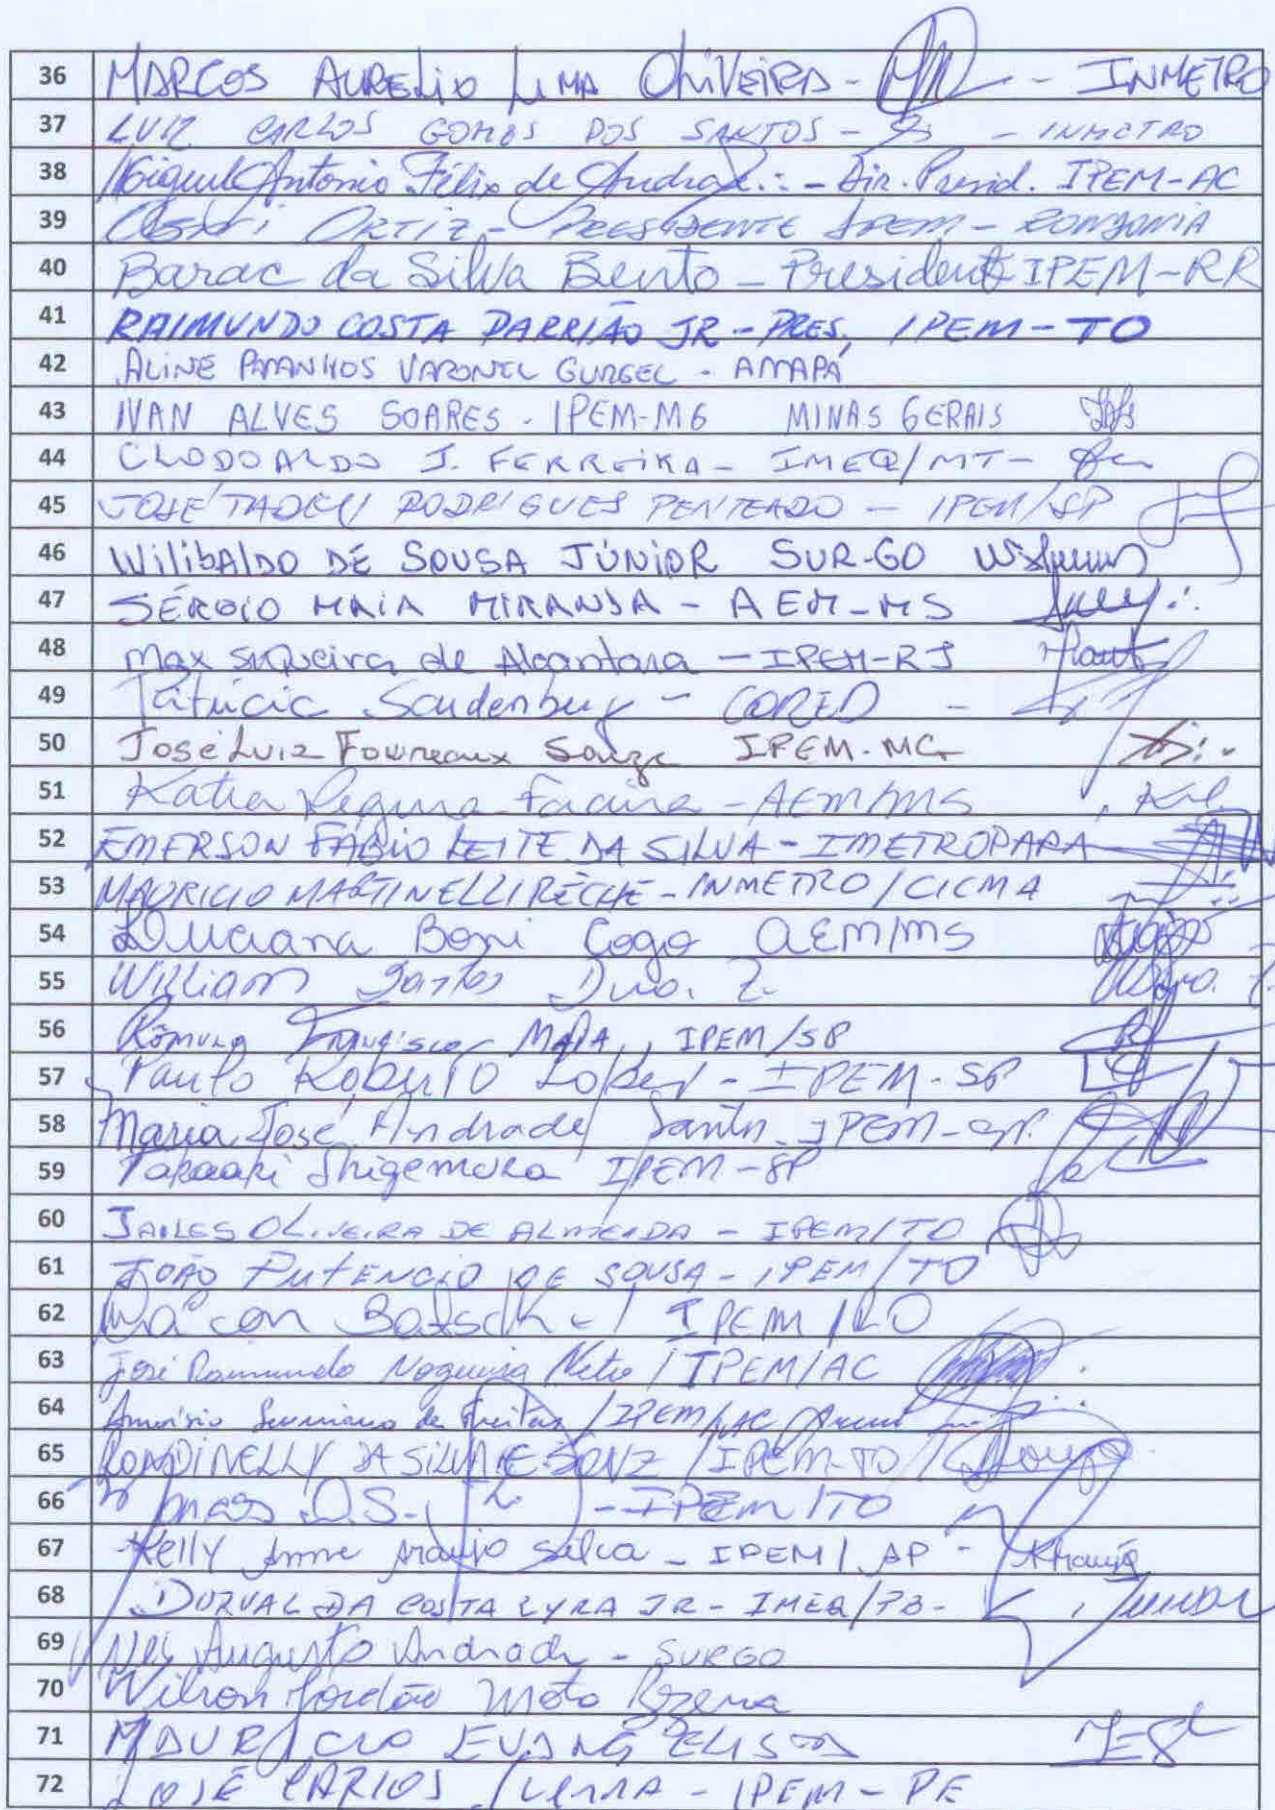 36 MARCOS AURELIO LIMA OLIVEIRA - - INMETRO
37 LUIZ CARLOS GOMES DOS SANTOS - - INMETRO
38 Miguel Antonio Félix de Andrade - Dir. Presid. IPEM-AC
39 ORTIZ - PRESIDENTE IPEM - RONDONIA
40 Barac da Silva Bento - Presidente IPEM-RR
41 RAIMUNDO COSTA PARRIÃO JR - PRES, IPEM-TO
42 ALINE PARANHOS VARONIL GURGEL - AMAPÁ
43 IVAN ALVES SOARES - IPEM-MG MINAS GERAIS
44 CLODOALDO J. FERREIRA - IMEQ/MT -
45 JOSÉ TADEU RODRIGUES PENTEADO - IPEM/SP
46 WILIBALDO DE SOUSA JÚNIOR SUR-GO
47 SÉRGIO MAIA MIRANDA - AEM-MS
48 Max Siqueira de Alcantara - IPEM-RJ
49 Patricia - CORED -
50 José Luiz Foureaux Souza IPEM-MG
51 Katia Regina - AEM/MS
52 EMERSON FÁBIO LEITE DA SILVA - IMETROPARA
53 MAURICIO MARTINELLI RÉCHE - INMETRO/CICMA
54 Luciana Boni Cogo AEM/MS
55 William
56 Rômulo Francisco IPEM/SP
57 Paulo Roberto Lopes - IPEM-SP
58 Maria José Andrade Santos - IPEM-SP.
59 Takaaki Shigemura IPEM-SP
60 OLIVEIRA DE ALMEIDA - IPEM/TO
61 JOÃO PUTENCIO DE SOUSA - IPEM/TO
62 Batsch - IPEM/RO
63 José Raimundo Nogueira Neto / IPEM/AC
64 de Freitas / IPEM/AC
65 RONDINELLY DA SILVA E SOUZ / IPEM-TO /
66 - IPEM/TO
67 Kelly Anne Araujo Salva - IPEM/AP -
68 DURVAL DA COSTA LYRA JR - IMEQ/PB -
69 Augusto Andrade - SURGO
70 Wilson Mota
71 MAURICIO EVANGELISTA
72 JOSÉ CARLOS - IPEM-PE